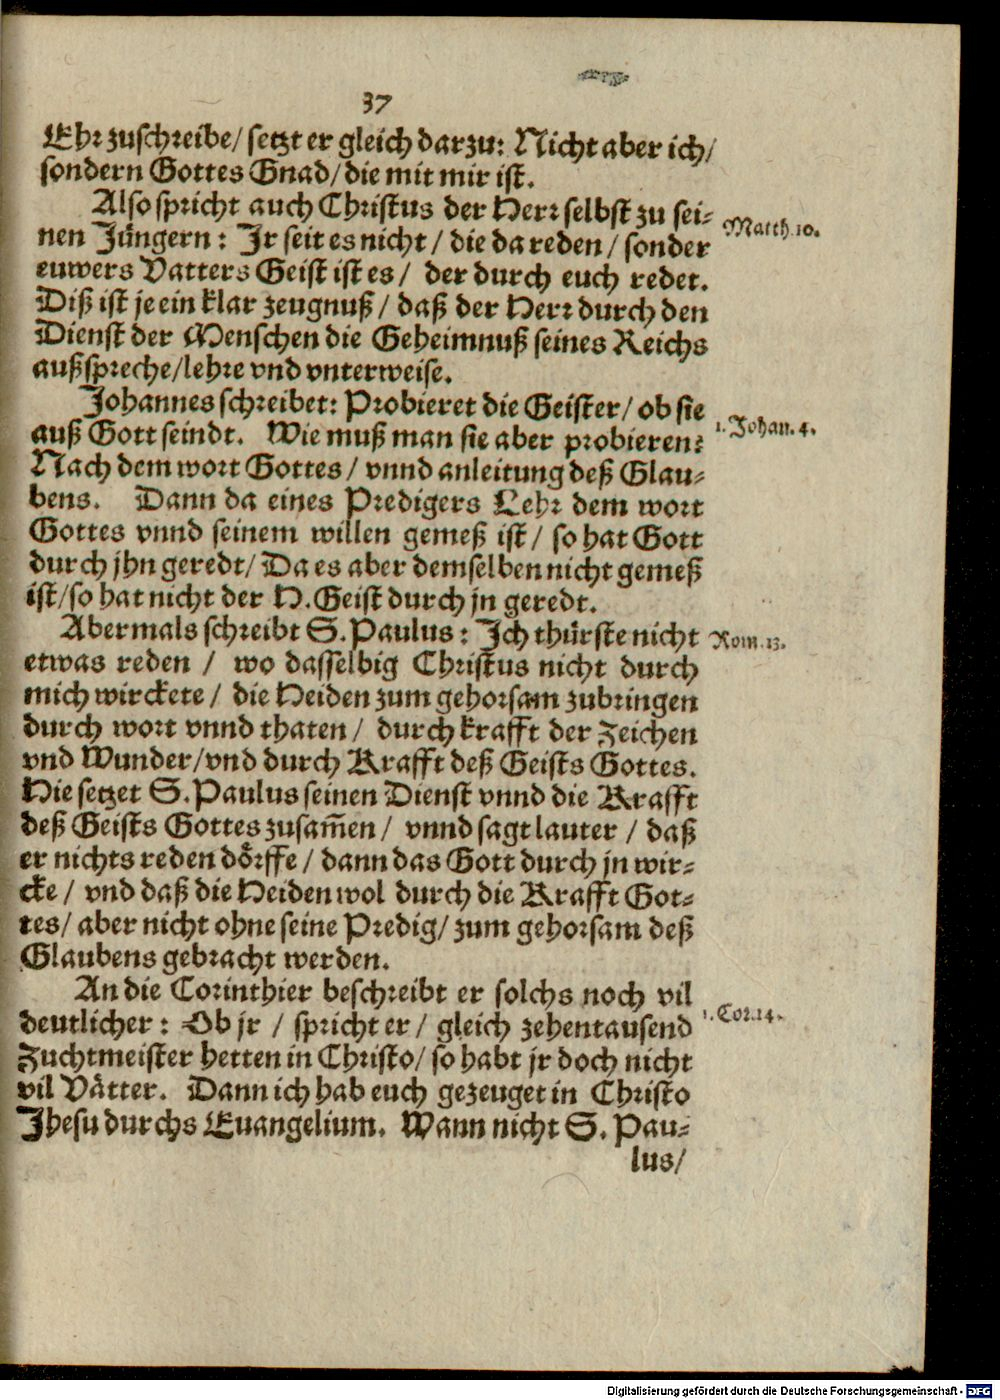 37
Ehr zuschreibe/ setzt er gleich darzu: Nicht aber ich/
sondern Gottes Gnad/ die mit mir ist.
Also spricht auch Christus der Herr selbst zu sei-
nen Jüngern: Jr seit es nicht/ die da reden/ sonder
euwers Vatters Geist ist es/ der durch euch redet.
Matth. 10.
Diß ist je ein klar zeugnuß/ daß der Herr durch den
Dienst der Menschen die Geheimnuß seines Reichs
außspreche/ lehre vnd vnterweise.
Johannes schreibet: Probieret die Geister/ ob sie
auß Gott seindt. Wie muß man sie aber probieren?
1. Johan. 4.
Nach dem wort Gottes/ vnnd anleitung deß Glau-
bens. Dann da eines Predigers Lehr dem wort
Gottes vnnd seinem willen gemeß ist/ so hat Gott
durch jhn geredt/ Da es aber demselben nicht gemeß
ist/ so hat nicht der H. Geist durch jn geredt.
Abermals schreibt S. Paulus: Ich thürste nicht
Rom. 13.
etwas reden/ wo dasselbig Christus nicht durch
mich wirckete/ die Heiden zum gehorsam zubringen
durch wort vnnd thaten/ durch krafft der Zeichen
vnd Wunder/ vnd durch Krafft deß Geists Gottes.
Hie setzet S. Paulus seinen Dienst vnnd die Krafft
deß Geists Gottes zusam̃en/ vnnd sagt lauter/ daß
er nichts reden dörffe/ dann das Gott durch jn wir-
cke/ vnd daß die Heiden wol durch die Krafft Got-
tes/ aber nicht ohne seine Predig/ zum gehorsam deß
Glaubens gebracht werden.
An die Corinthier beschreibt er solchs noch vil
deutlicher: Ob jr/ spricht er/ gleich zehentausend
1. Cor. 14.
Zuchtmeister hetten in Christo/ so habt jr doch nicht
vil Vätter. Dann ich hab euch gezeuget in Christo
Jhesu durchs Euangelium. Wann nicht S. Pau-
lus/
Digitalisierung gefördert durch die Deutsche Forschungsgemeinschaft - DFG